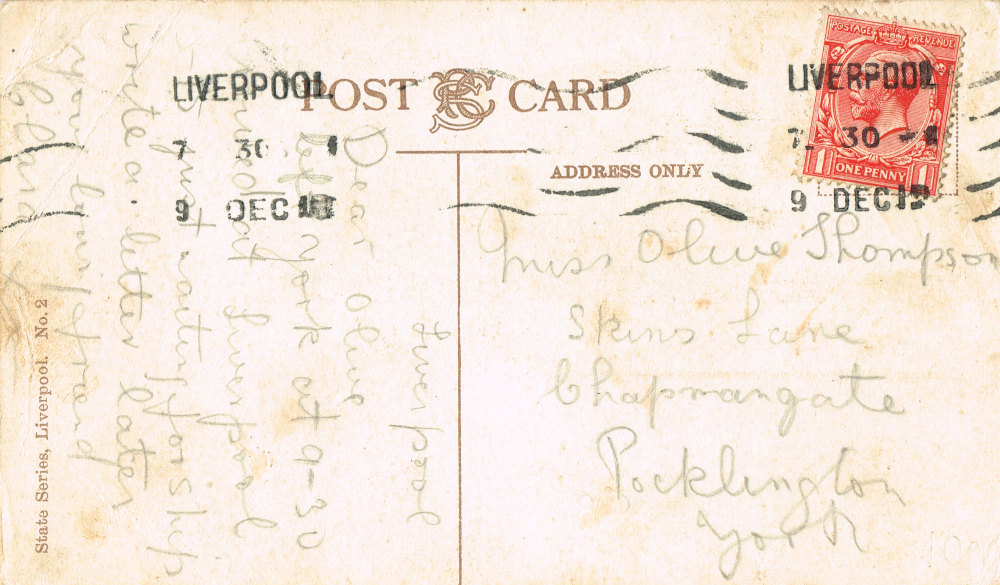 POST CARD
ADDRESS ONLY
LIVERPOOL
7 30
9 DEC
LIVERPOOL
7 30
9 DEC 19
POSTAGE REVENUE
1 ONE PENNY 1
Miss Olive Thompson
Skins Lane
Chapmangate
Pocklington
York
Liverpool
Dear Olive
Left york at 9-30
at Liverpool
just waiting for ship
write a letter later
your loving friend
State Series, Liverpool. No. 2